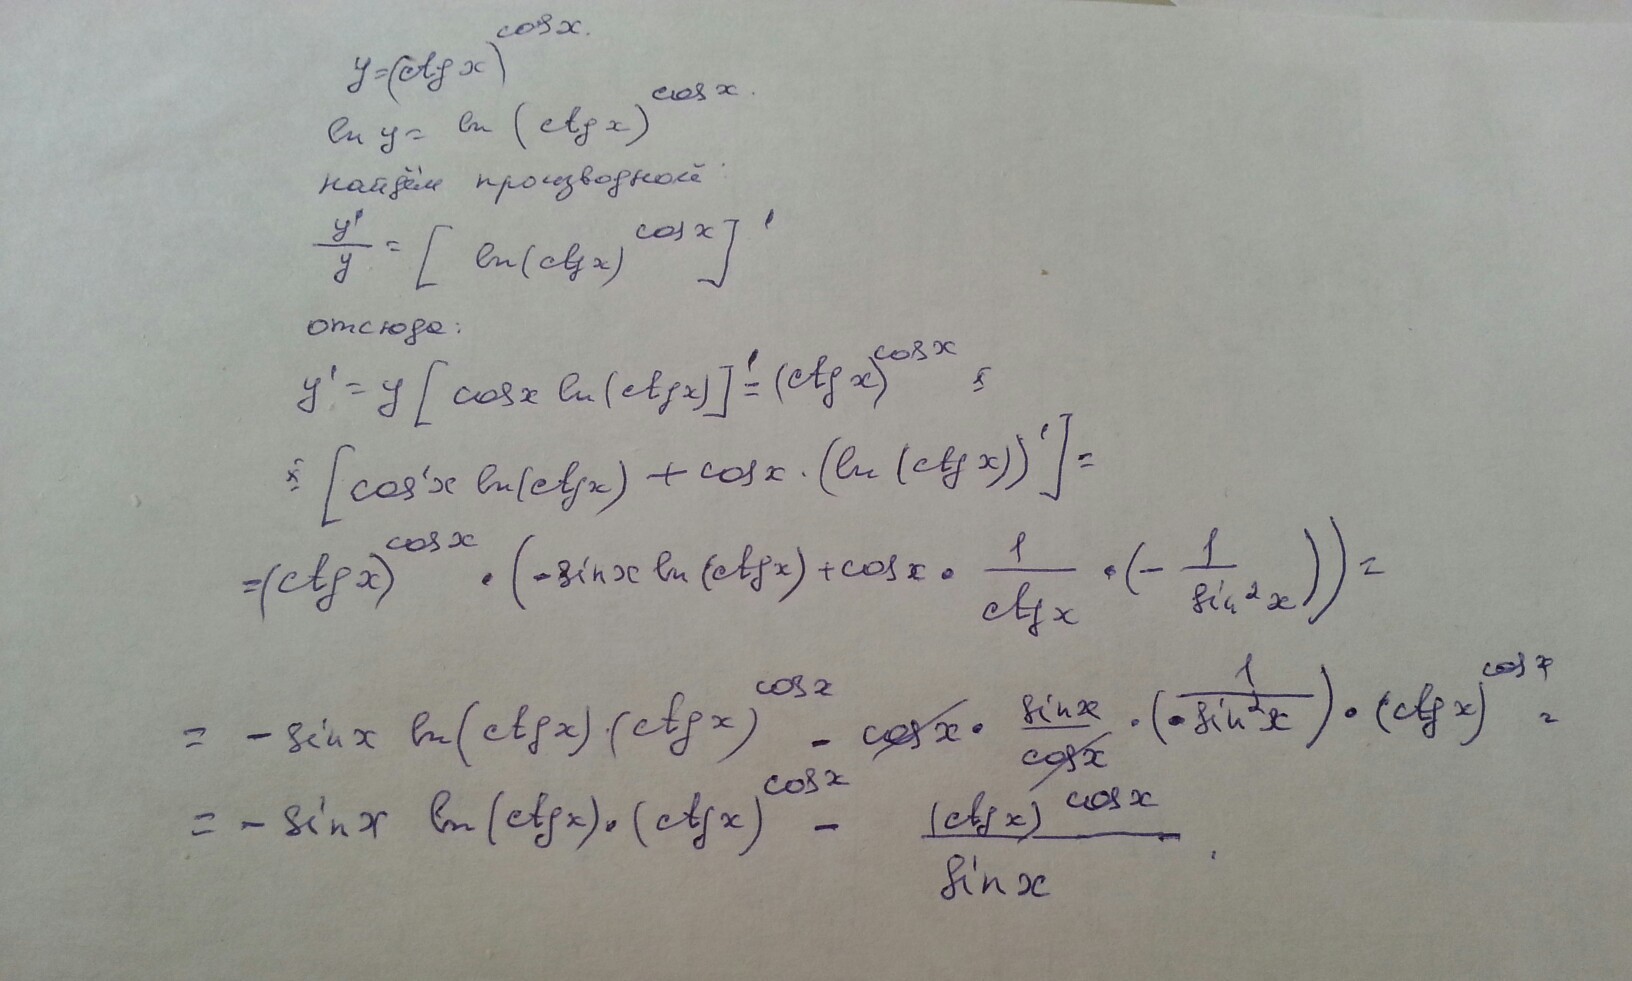 y=(ctg x)^cosx.
ln y= ln (ctg x)^cosx.
найдём производной
y'/y = [ ln(ctg x)^cosx ]'
отсюда:
y' = y [ cosx ln(ctg x) ]' = (ctg x)^cosx ×
× [ cos'x ln(ctg x) + cosx · (ln (ctg x))' ] =
=(ctg x)^cosx · (-sinx ln (ctg x) + cosx · 1/ctg x · (- 1/sin²x)) =
= - sinx ln(ctg x) · (ctg x)^cosx - cosx · sinx/cosx · (· 1/sin²x) · (ctg x)^cosx =
= - sinx ln (ctg x) · (ctg x)^cosx - (ctg x)^cosx/sinx .